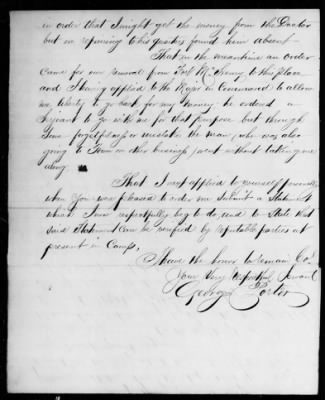 in order that I might get the money from the Doctor
but on repairing to his quarters found him absent—
That in the meantime an order
came for our removal from Fort McHenry to this place
and I having applied to the Major in Command to allow
me liberty to go back for my money he ordered a
Serjeant to go with me for that purpose but through
some forgetfulness or mistake the man (who was also
going to Town on other business) went without taking me
along
That I next applied to yourself personally
when you was pleased to order me Submit a Statement
which I now respectfully beg to do, and to State that
said Statement can be verified by reputable parties at
present in Camp,
I have the honor to remain Col
Your Very Respectful Servant
George Porter